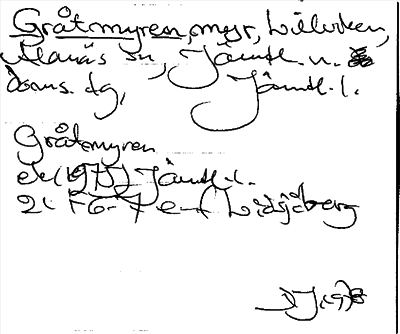 Gråtmyren, myr, Lillviken,
Alanäs sn, Jämtl. n.
doms. dg, Jämtl. l.
Gråtmyren
ek (1975) Jämtl. l.
21 F 6-7 e-f Lidsjöberg
DJ 1978